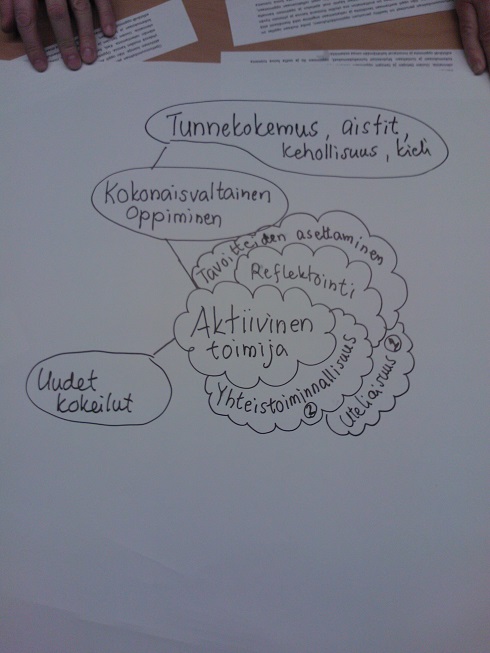 Tunnekokemus, aistit,
kehollisuus, kieli
Kokonaisvaltainen
Oppiminen
Tavoitteiden asettaminen
Reflektointi
Aktiivinen
toimija
Uudet
kokeilut
Yhteistoiminnallisuus
2
Uteliaisuus